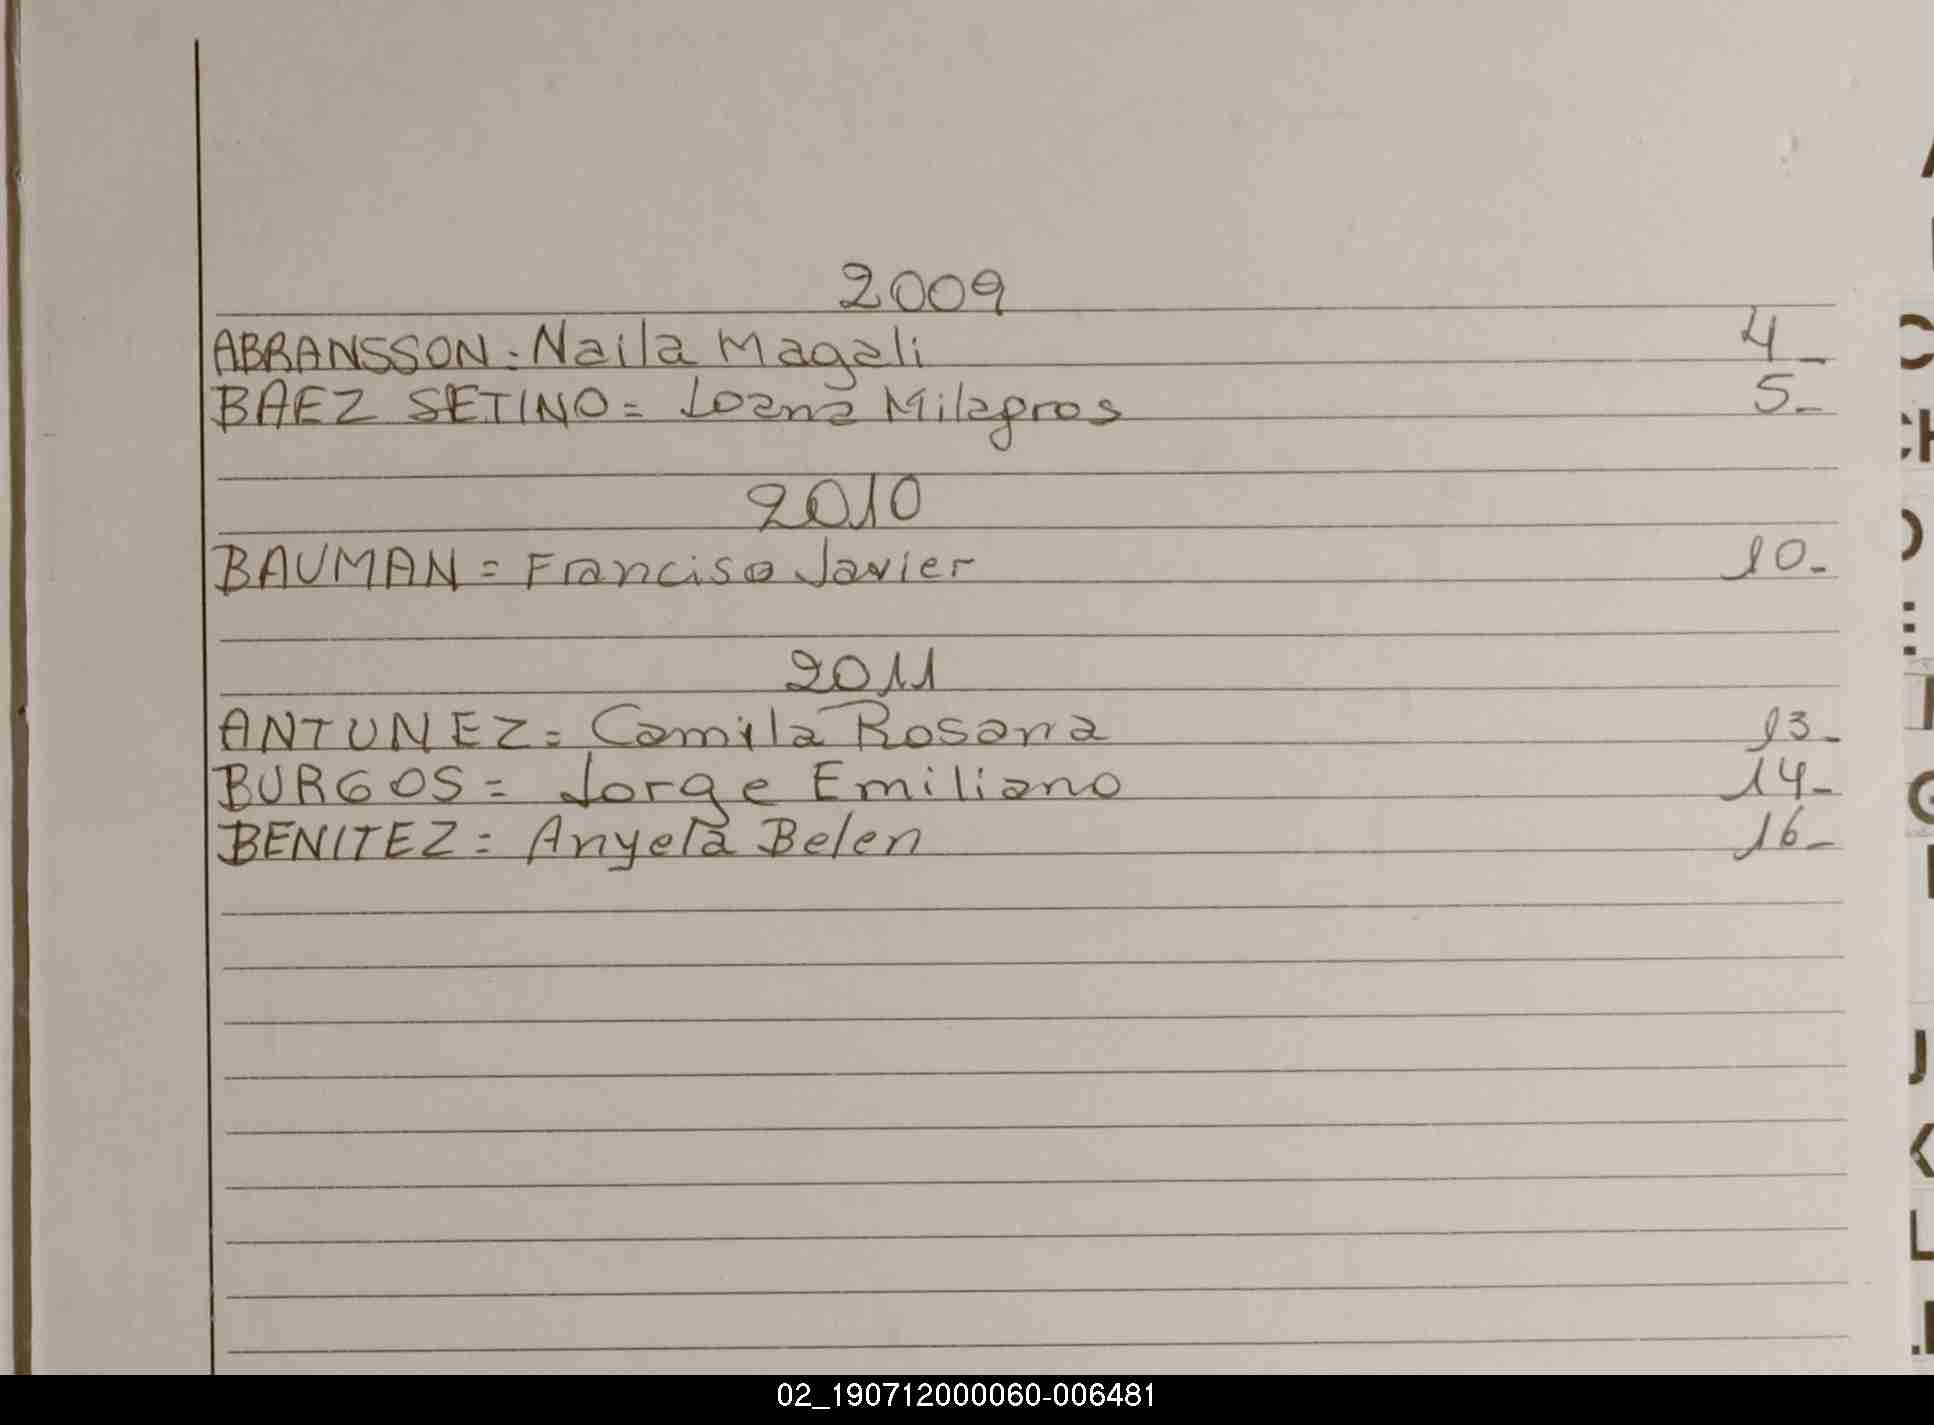 2009
ABRANSSON. Naila Magali 4_
BAEZ SETINO = Joana Milagros 5_
2010
BAUMAN = Franciso Javier 10_
2011
ANTUNEZ = Camila Rosana 13_
BURGOS = Jorge Emiliano 14_
BENITEZ = Anyela Belen 16_
02_190712000060-006481